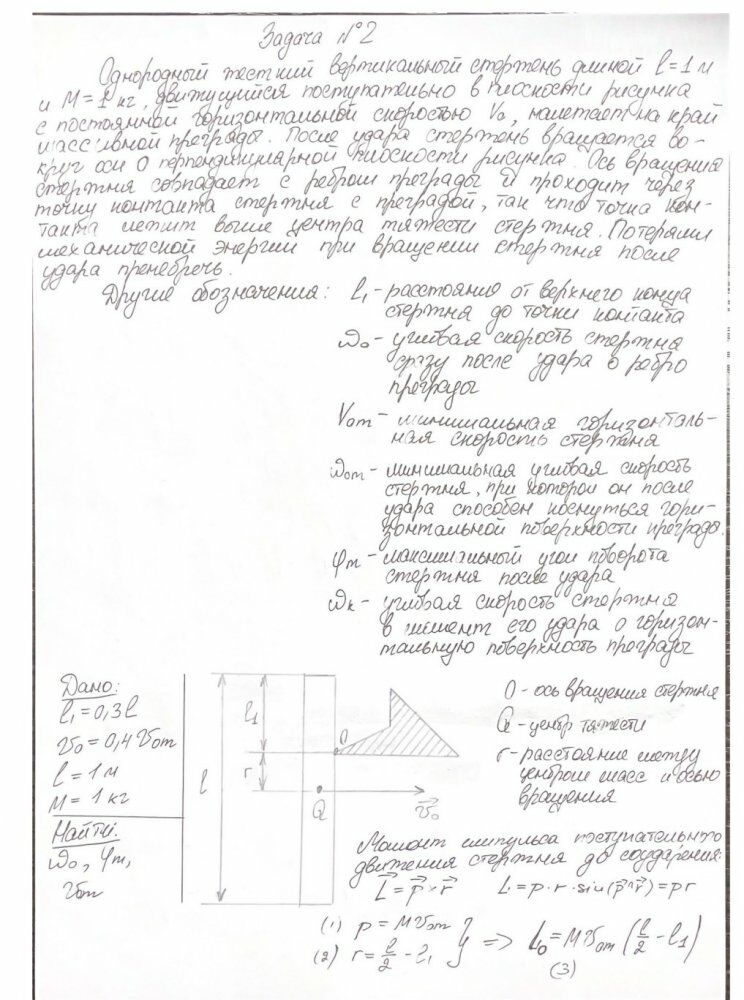 Задача №2
Однородный жесткий вертикальный стержень длиной l=1 м
и М=1 кг, движущийся поступательно в плоскости рисунка
с постоянной горизонтальной скоростью V₀, налетает на край
массивной преграды. После удара стержень вращается во-
круг оси О перпендикулярной плоскости рисунка. Ось вращения
стержня совпадает с ребром преграды и проходит через
точку контакта стержня с преградой, так что точка кон-
такта лежит выше центра тяжести стержня. Потерями
механической энергии при вращении стержня после
удара пренебречь.
Другие обозначения: l₁ - расстояния от верхнего конца
стержня до точки контакта
ω₀ - угловая скорость стержня
сразу после удара о ребро
преграды
V₀m - минимальная горизонталь-
ная скорость стержня
ω₀m - минимальная угловая скорость
стержня, при котором он после
удара способен коснуться гори-
зонтальной поверхности преграды.
φm - максимальный угол поворота
стержня после удара
ωк - угловая скорость стержня
в момент его удара о горизон-
тальную поверхность преграды
Дано:
l₁=0,3l
v₀=0,4 v₀m
l=1 м
М=1 кг
Найти:
ω₀, φm,
v₀m
l
l₁
r
O
Q
v⃗₀
О - ось вращения стержня
Q - центр тяжести
r - расстояние между
центром масс и осью
вращения
Момент импульса поступательного
движения стержня до соударения:
L⃗ = p⃗ × r⃗ L = p·r·sin(p⃗^r⃗) = pr
(1) p = Mv₀m
(2) r = l/2 - l₁ } => L₀ = Mv₀m (l/2 - l₁)
(3)